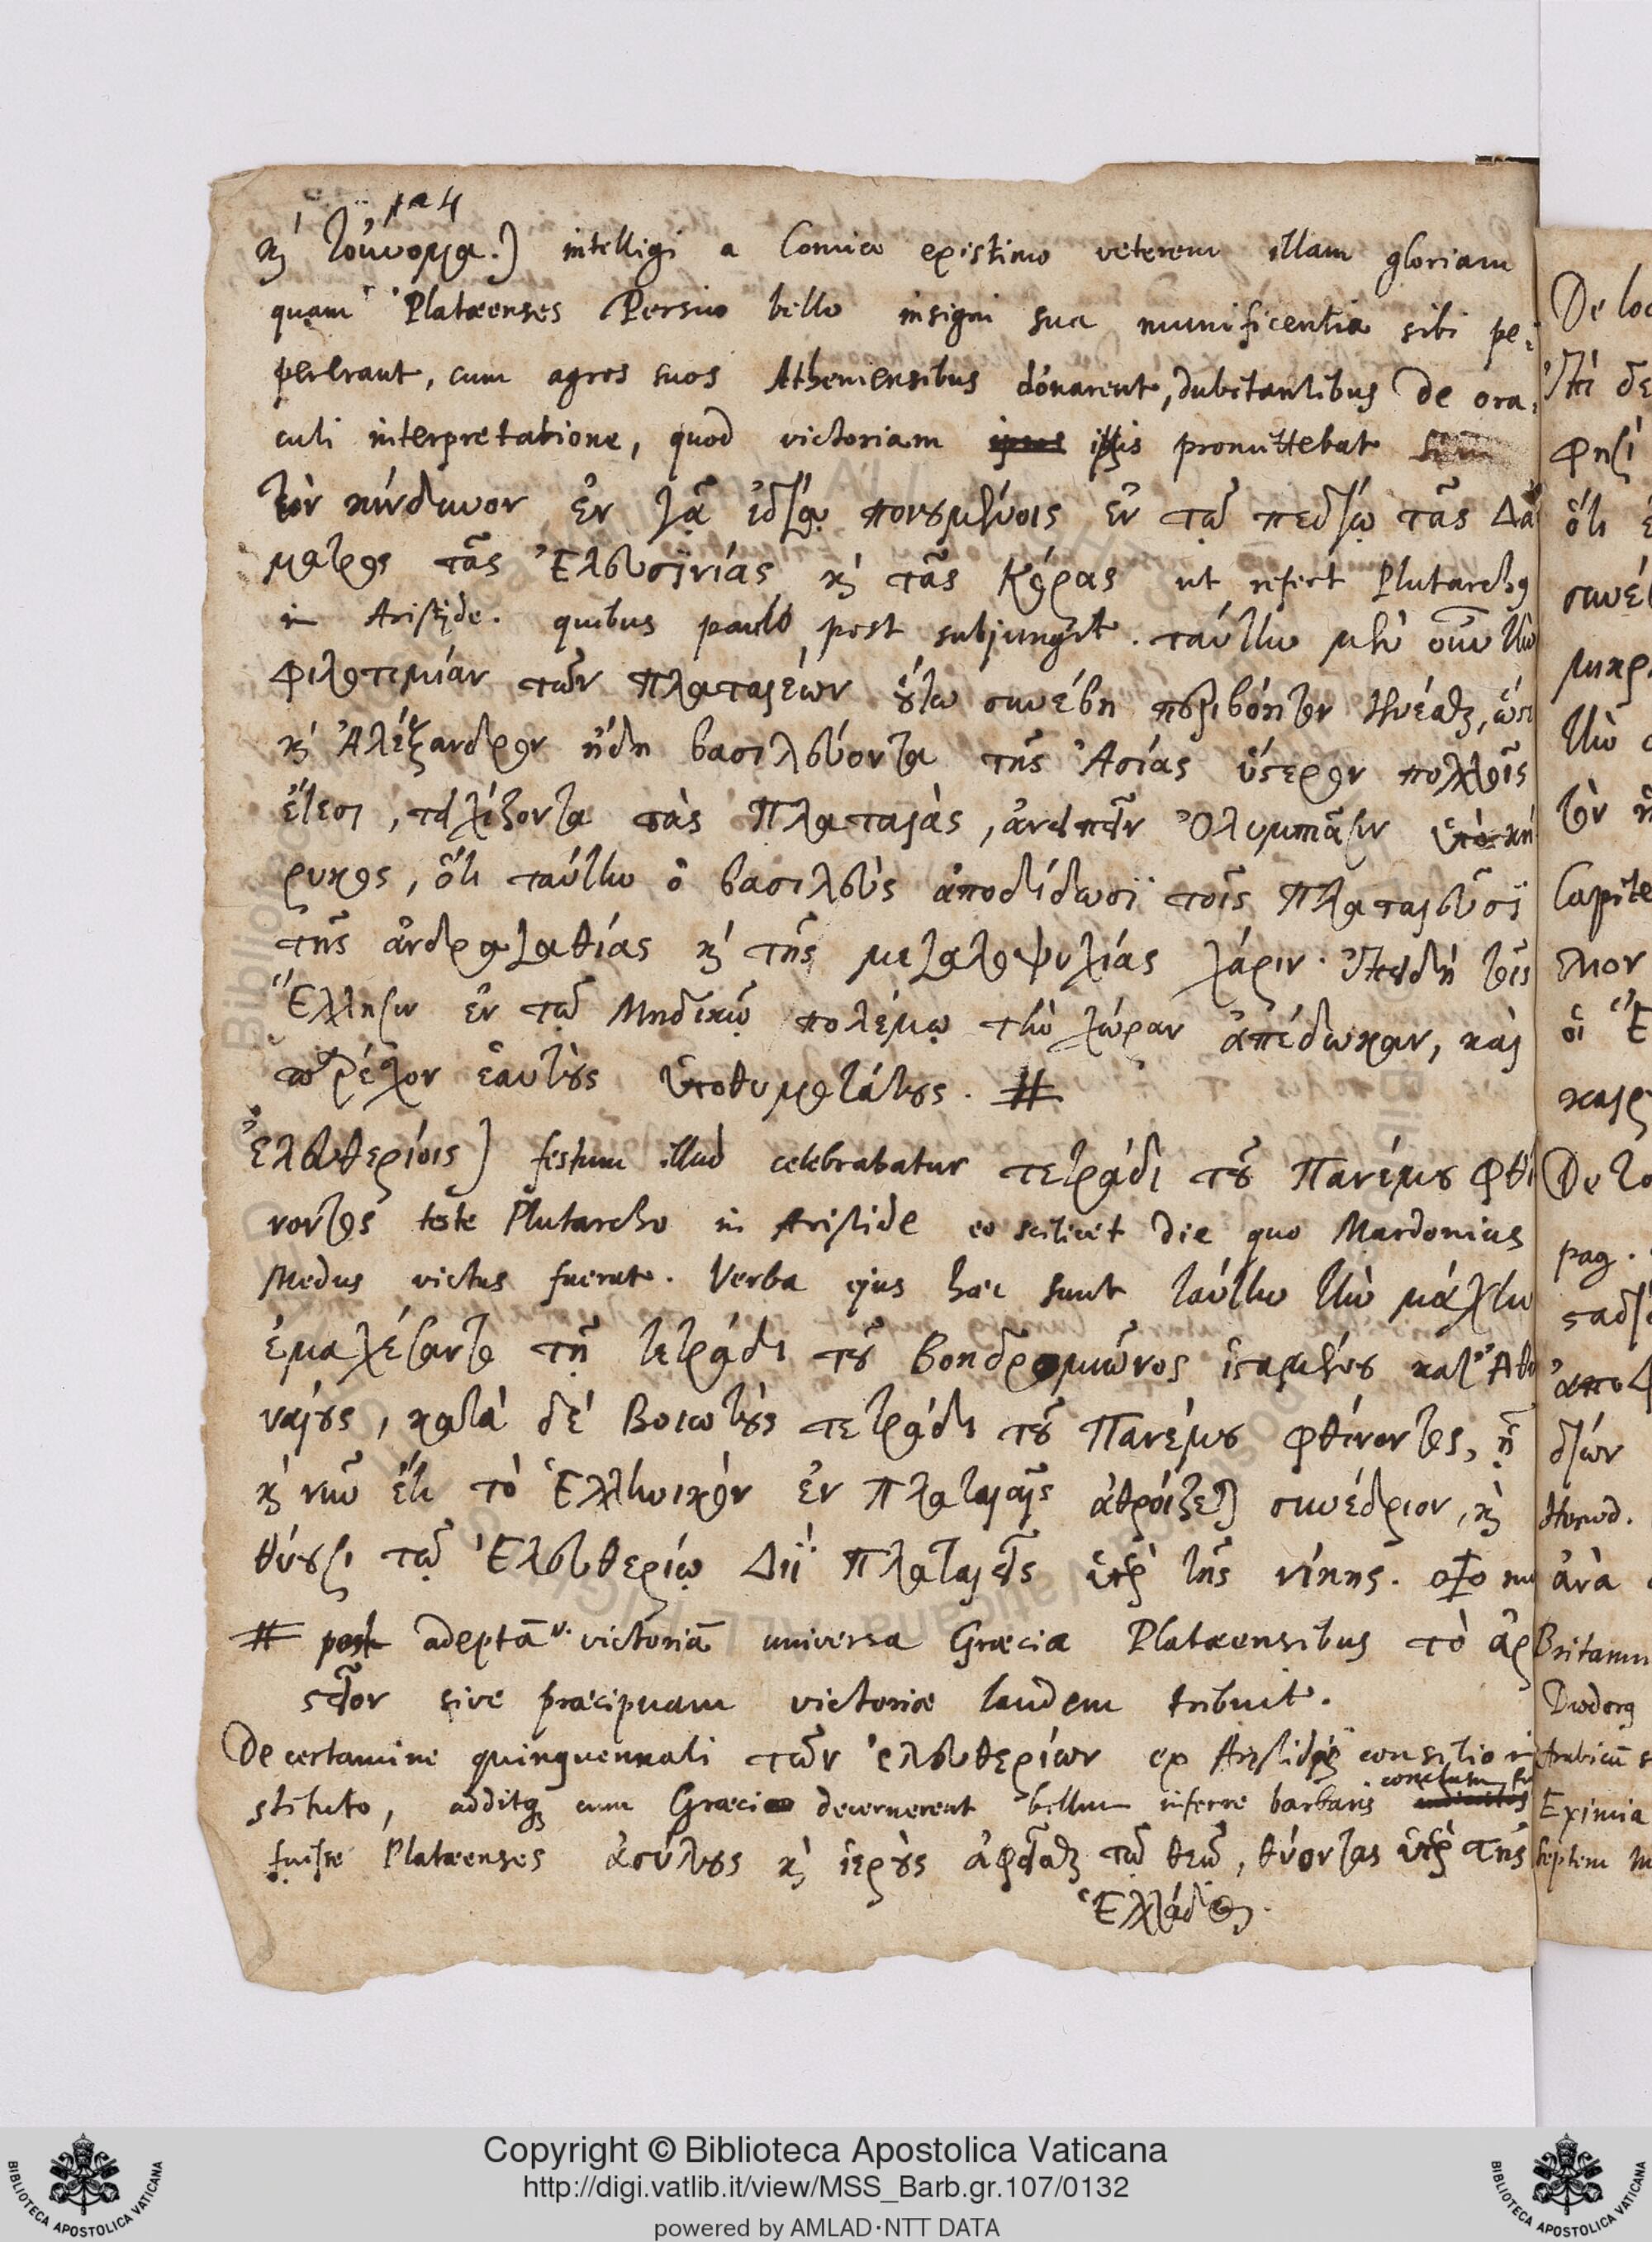 pa 4
κ̀ τοὔνομα.] intelligi a Comico existimo veterem illam gloriam
quam Plataeenses Persico bello insigni sua munificentia sibi pe-
pererant, cum agros suos Atheniensibus donarent, dubitantibus de ora-
culi interpretatione, quod victoriam ipsis promittebat
τὸν κίνδυνον ἐν γᾷ ἰδίᾳ ποιουμένοις ἐν τῷ πεδίῳ τᾶς Δά
ματρος τᾶς Ἐλευσινίας κ̀ τᾶς Κόρας ut refert Plutarchus
in Aristide. quibus paulo post subjungit. ταύτην μὲν οὖν τὴν
φιλοτιμίαν τῶν Πλαταιέων οὕτω συνέβη περιβόητον γενέσθαι, ὥστε
κ̀ Ἀλέξανδρον ἤδη βασιλεύοντα τῆς Ἀσίας ὕστερον πολλοῖς
ἔτεσι, τειχίζοντα τὰς Πλαταιὰς, ἀνειπεῖν Ὀλυμπιᾶσιν ὑπὸ κή
ρυκος, ὅτι ταύτην ὁ βασιλεὺς ἀποδίδωσι τοῖς Πλαταιεῦσι
τῆς ἀνδραγαθίας κ̀ τῆς μεγαλοψυχίας χάριν. ἐπειδὴ τοῖς
Ἕλλησιν ἐν τῷ Μηδικῷ πολέμῳ τὴν χώραν ἀπέδωκαν, καὶ
παρέσχον ἑαυτοὺς προθυμοτάτους. #
Ἐλευθερίοις] festum illud celebrabatur τετράδι τοῦ Πανέμου φθί
νοντος teste Plutarcho in Aristide eo scilicet die quo Mardonius
Medus victus fuerat. Verba ejus haec sunt ταύτην τὴν μάχην
ἐμαχέσαντο τῇ τετράδι τοῦ Βοηδρομιῶνος ἱσταμένου κατ' Ἀθη
ναίους, κατὰ δὲ Βοιωτοὺς τετράδι τοῦ Πανέμου φθίνοντος, ᾗ
κ̀ νῦν ἔτι τὸ Ἑλληνικὸν ἐν Πλαταιαῖς ἀθροίζεται συνέδριον, κ̀
θύουσι τῷ Ἐλευθερίῳ Διὶ Πλαταιεῖς ὑπὲρ τῆς νίκης.
# post adeptā victoriā universa Graecia Plataeensibus τὸ ἀρ
στεῖον sive praecipuam victoriae laudem tribuit.
De certamine quinquennali τῶν ἐλευθερίων ex Aristidis consilio in
stituto, additque cum Graeci decernerent bellum inferre barbaris
fuisse Plataeenses ἀσύλους κ̀ ἱεροὺς ἀφεῖσθαι τῷ θεῷ, θύοντας ὑπὲρ τῆς
Ἑλλάδος.
De loc
φησὶ
ὅτι
μικρ
τὴν
τὸν
Capite
οἱ Ἑ
pag.
σταδί
δίων
Herod.
ἀνὰ
Britann
Diodorus
Arabicū
Eximia
septem
Copyright © Biblioteca Apostolica Vaticana
http://digi.vatlib.it/view/MSS_Barb.gr.107/0132
powered by AMLAD·NTT DATA
BIBLIOTECA APOSTOLICA VATICANA
BIBLIOTECA APOSTOLICA VATICANA